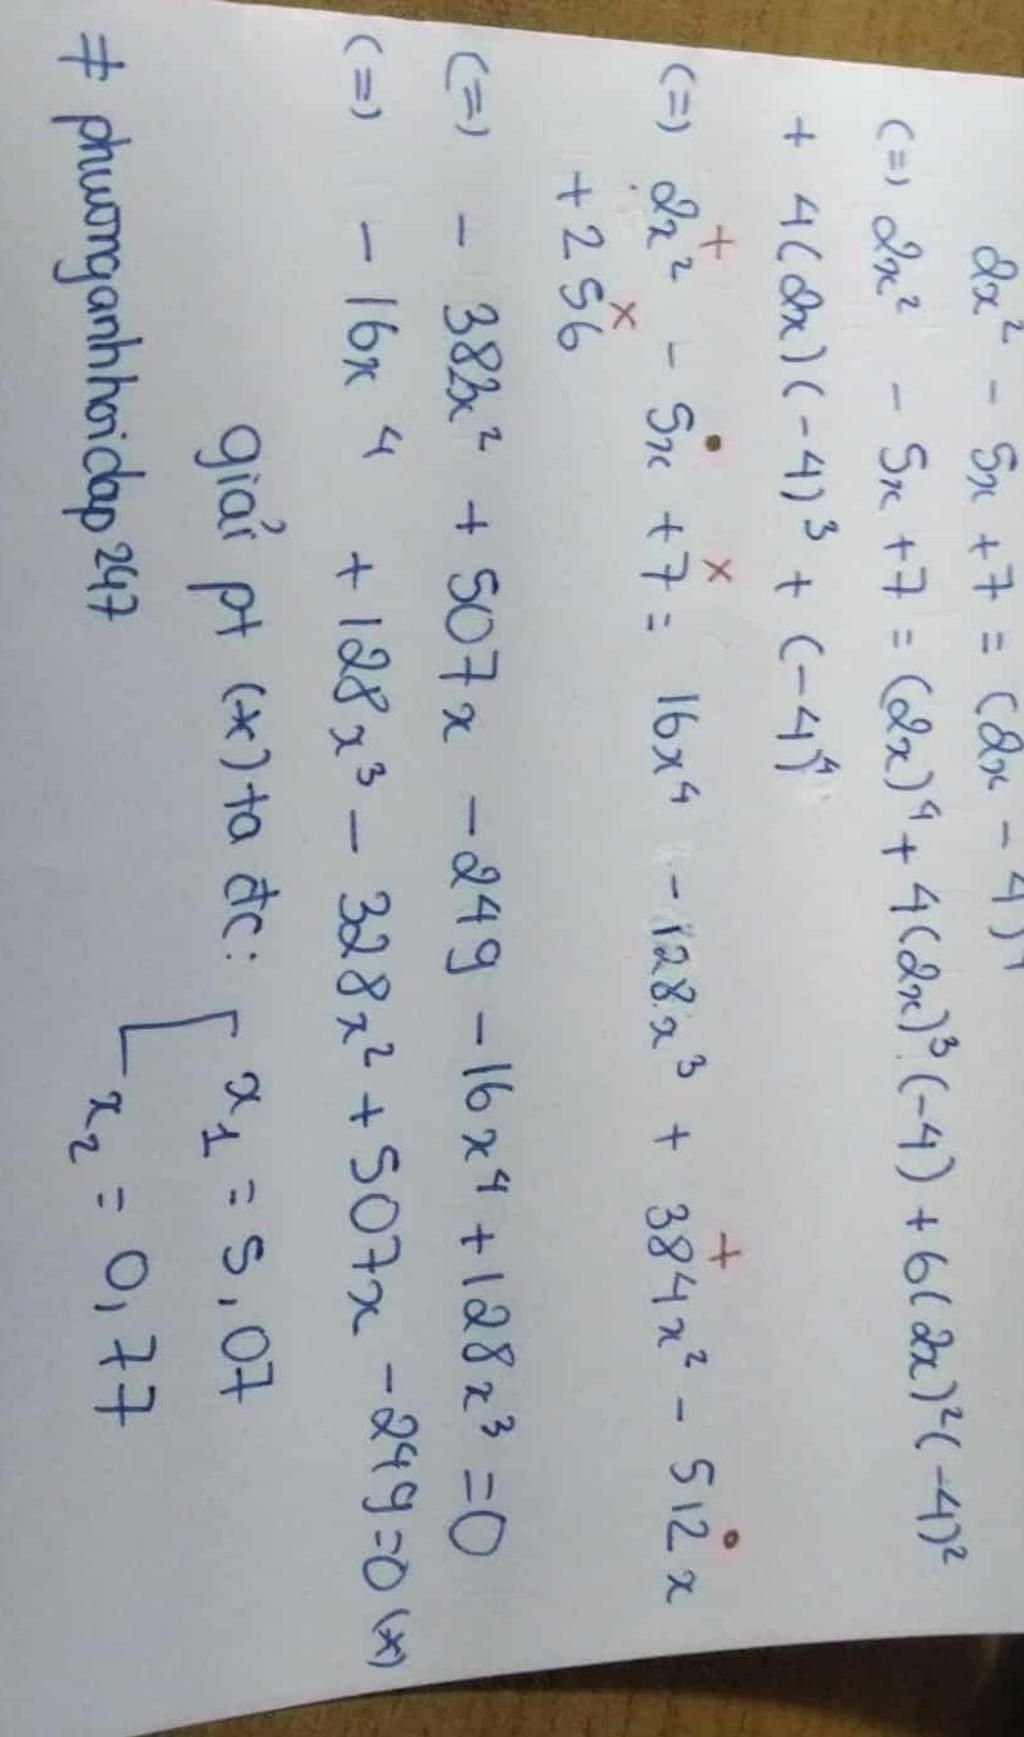 2x² - 5x + 7 = (2x - 4)⁴
(=) 2x² - 5x + 7 = (2x)⁴ + 4(2x)³(-4) + 6(2x)²(-4)²
+ 4(2x)(-4)³ + (-4)⁴
(=) 2x² - 5x + 7 = 16x⁴ - 128x³ + 384x² - 512x
+ 256
(=) - 382x² + 507x - 249 - 16x⁴ + 128x³ = 0
(=) - 16x⁴ + 128x³ - 328x² + 507x - 249 = 0 (*)
giải pt (*) ta đc: [ x₁ = 5,07
x₂ = 0,77
# phuonganhhoidap247